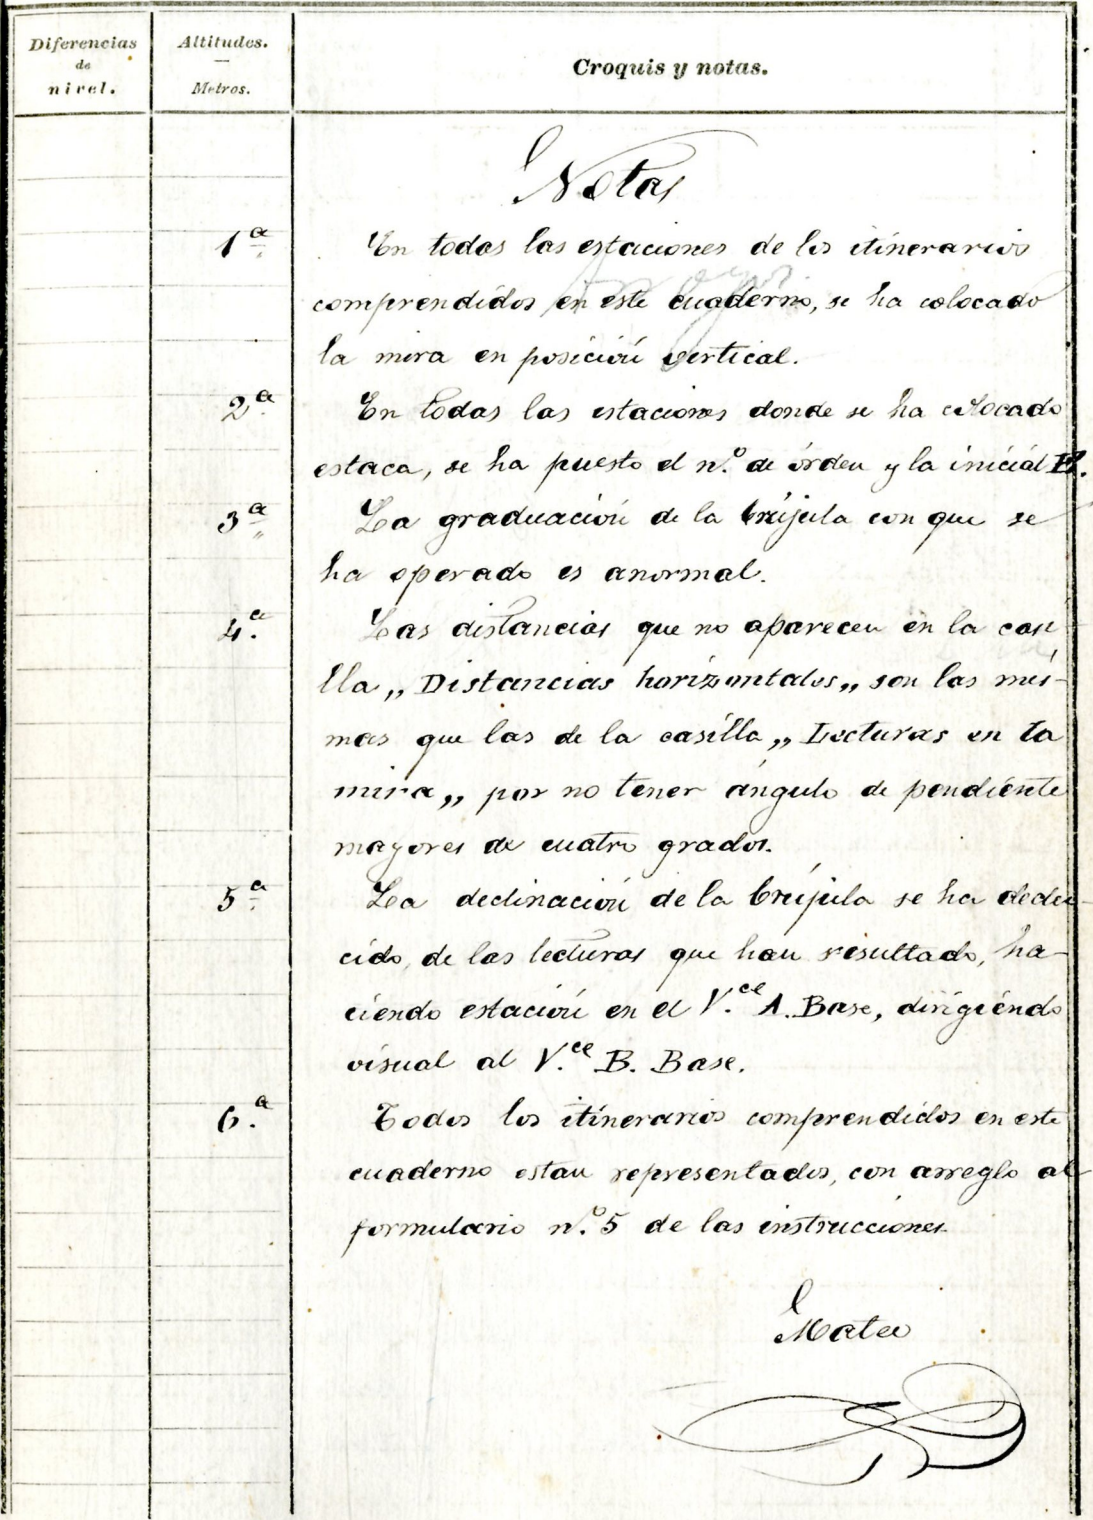 Diferencias
de
nivel.
Altitudes.
Metros.
Croquis y notas.
Notas
1ª En todas las estaciones de los itinerarios
comprendidos en este cuaderno, se ha colocado
la mira en posición vertical.
2ª En todas las estaciones donde se ha colocado
estaca, se ha puesto el n.º de órden y la inicial
3ª La graduación de la brújula con que se
ha operado es anormal.
4.ª Las distancias que no aparecen en la casi
lla „Distancias horizontales„ son las mis-
mas que las de la casilla „Lecturas en la
mira„ por no tener ángulo de pendiente
mayores de cuatro grados.
5ª La declinación de la brújula se ha dedu-
cido, de las lecturas que han resultado, ha-
ciendo estación en el V.ce A. Base, dirigiendo
visual al V.ce B. Base.
6.ª Todos los itinerarios comprendidos en este
cuaderno estan representados, con arreglo al
formulario n.º 5 de las instrucciones.
Mateo